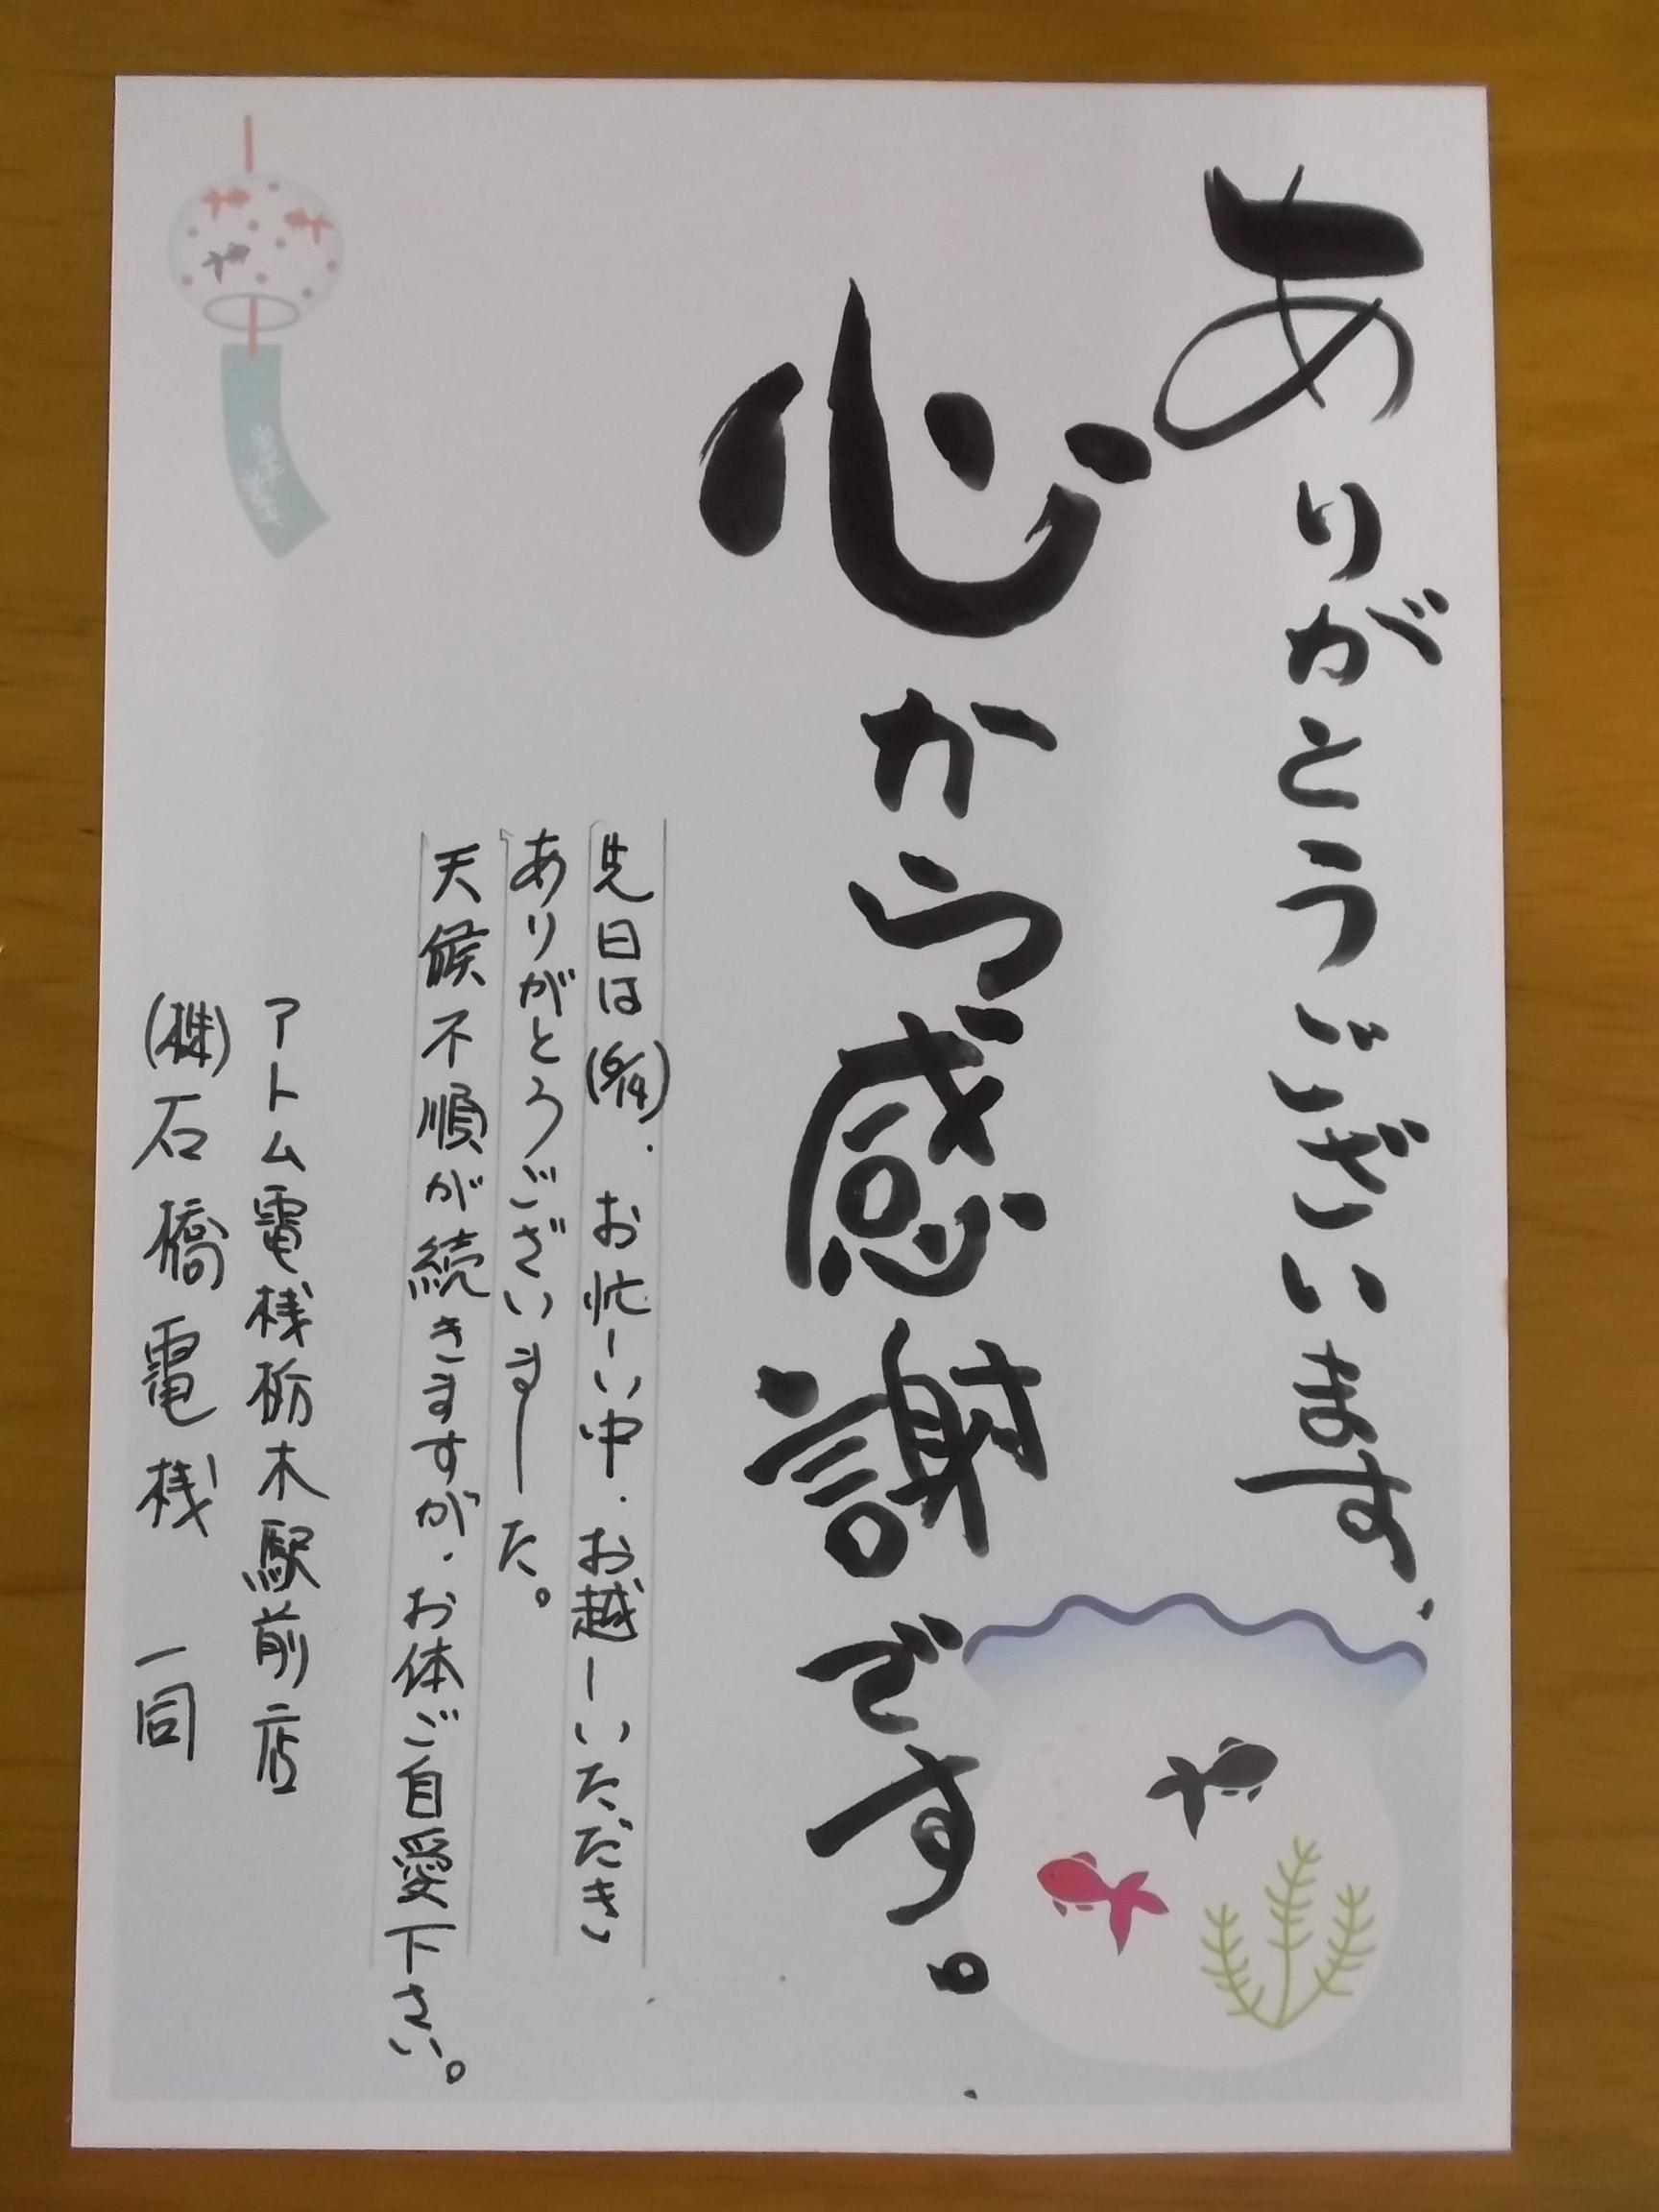 ありがとうございます
心から感謝です。
先日は(6/14)、お忙しい中、お越しいただき
ありがとうございました。
天候不順が続きますが、お体ご自愛下さい。
アトム電機栃木駅前店
(株)石橋電機 一同